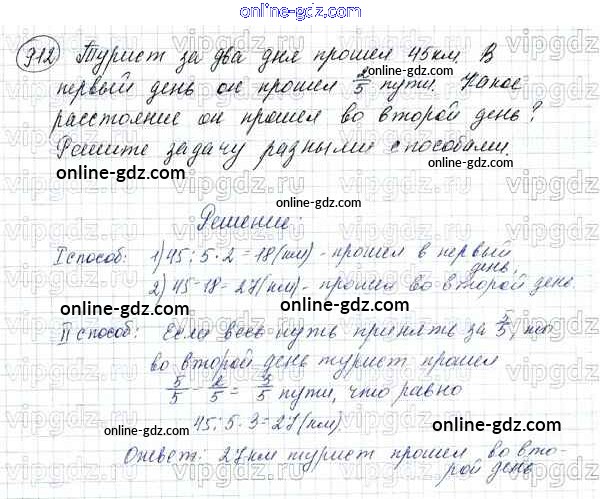 online-gdz.com
912 Турист за два дня прошел 45км. В
первый день он прошел 2/5 пути. Какое
расстояние он прошел во второй день?
Решите задачу разными способами.
Решение:
I способ: 1) 45 : 5 · 2 = 18 (км) - прошел в первый
день,
2) 45 - 18 = 27 (км) - прошел во второй день.
II способ: Если весь путь принять за 5/5,
во второй день турист прошел
5/5 - 2/5 = 3/5 пути, что равно
45 : 5 · 3 = 27 (км).
Ответ: 27 км турист прошел во вто-
рой день
online-gdz.com
online-gdz.com
online-gdz.com
online-gdz.com
online-gdz.com
online-gdz.com
online-gdz.com
online-gdz.com
online-gdz.com
online-gdz.com
vipgdz.com